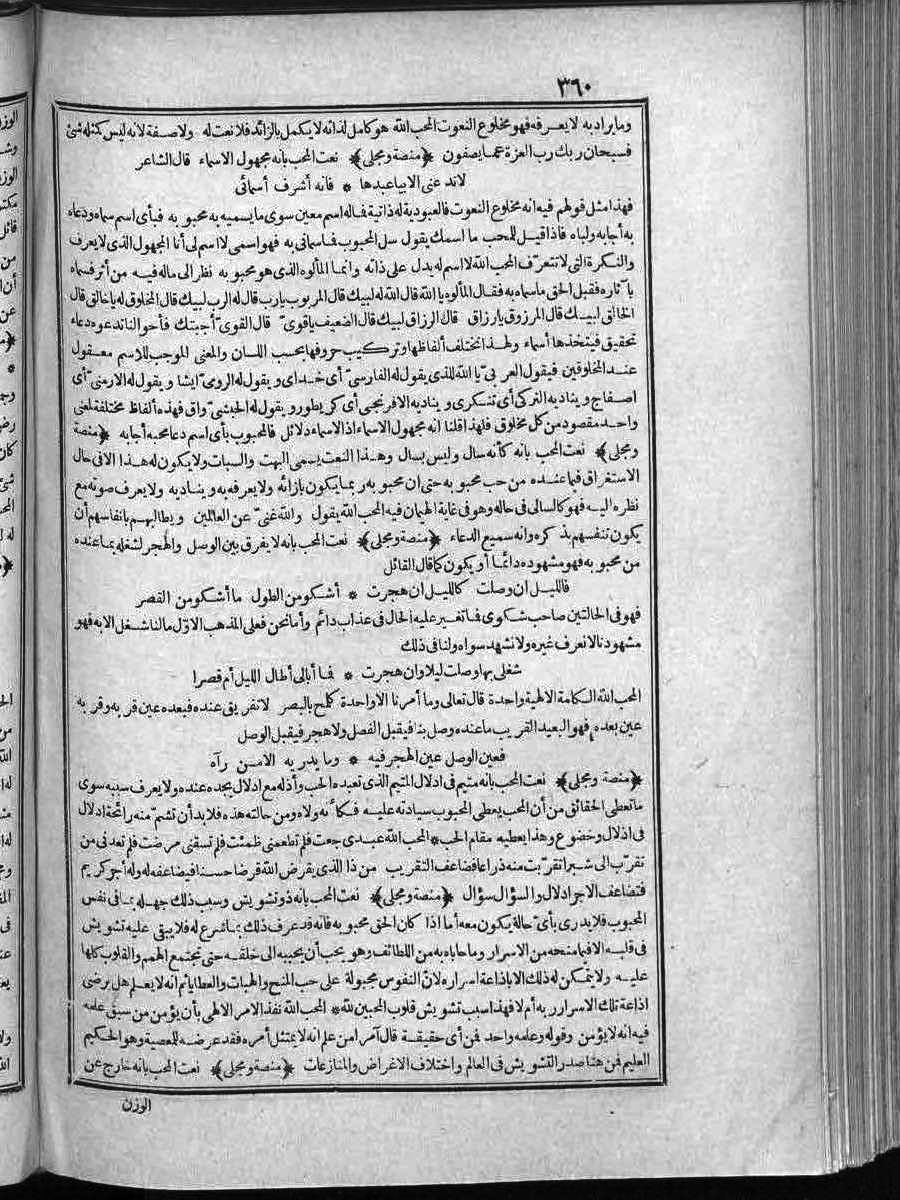 ٣٦٠
وما يراد به لا يعرفه فهو مخلوع النعوت المحب الله هو كامل لذاته لا يكمل بالزائد فلا نعت له ولا صفة لانه ليس كمثله شئ
فسبحان ربك رب العزة عما يصفون ﴿منصة ومجلى﴾ نعت المحب بانه مجهول الاسماء قال الشاعر
لا تدعنى الا بيا عبدها * فانه أشرف أسمائى
فهذا مثل قولهم فيه انه مخلوع النعوت فالعبودية له ذاتية فماله اسم معين سوى ما يسميه به محبوبه فبأى اسم سماه ودعاه
به أجابه ولباه فاذا قيل للمحب ما اسمك يقول سل المحبوب فما سمانى به فهو اسمى لا اسم لى أنا المجهول الذى لا يعرف
والنكرة التى لا تتعرّف المحب الله لا اسم له يدل على ذاته وانما المألوه الذى هو محبوبه نظر الى ماله فيه من أثر فسماه
با ّثاره فقبل الحق ما سماه به فقال المألوه يا الله قال الله له لبيك قال المربوب يا رب قال له الرب لبيك قال المخلوق له يا خالق قال
الخالق لبيك قال المرزوق يا رزاق قال الرزاق لبيك قال الضعيف يا قوىّ قال القوىّ أجبتك فأحوالنا تدعوه دعاء
تحقيق فيتخذها أسماء ولهذا تختلف ألفاظها وتركيب حروفها بحسب اللسان والمعنى الموجب للاسم معقول
عند المخلوقين فيقول العربىّ يا الله للذى يقول له الفارسىّ أى خداى ويقول له الرومىّ ايشا ويقول له الارمنىّ أى
اصفاج ويناديه التركى أى تنكرى ويناديه الافرنجى أى كريطور ويقول له الحبشىّ واق فهذه ألفاظ مختلفة لمعنى
واحد مقصود من كل مخلوق فلهذا قلنا انه مجهول الاسماء اذ الاسماء دلائل فالمحبوب بأى اسم دعا محبه أجابه ﴿منصة
ومجلى﴾ نعت المحب بانه كأنه سال وليس بسال وهذا النعت يسمى البهت والسبات ولا يكون له هذا الا فى حال
الاستغراق فيما عنده من حب محبوبه حتى ان محبوبه ربما يكون بازائه ولا يعرفه به ويناديه ولا يعرف صوته مع
نظره اليه فهو كالسالى فى حاله وهو فى غاية الهيمان فيه المحب الله يقول والله غنىّ عن العالمين ويطالبهم بانفاسهم أن
يكون تنفسهم بذكره وانه سميع الدعاء ﴿منصة ومجلى﴾ نعت المحب بانه لا يفرق بين الوصل والهجر لشغله بما عنده
من محبوبه فهو مشهوده دائما أو يكون كما قال القائل
فالليل ان وصلت كالليل ان هجرت * أشكو من الطول ما أشكو من القصر
فهو فى الحالتين صاحب شكوى فما تغير عليه الحال فى عذاب دائم وأما نحن فعلى المذهب الاوّل ما لنا شغل الا به فهو
مشهودنا لا نعرف غيره ولا نشهد سواه ولنا فى ذلك
شغلى بها وصلت ليلا وان هجرت * فما أبالى أطال الليل أم قصرا
المحب الله الكلمة الالهية واحدة قال تعالى وما أمرنا الا واحدة كلمح بالبصر لا تفريق عنده فبعده عين قربه وقربه
عين بعده فهو البعيد القريب ما عنده وصل بنا فيقبل الفصل ولا هجر فيقبل الوصل
فعين الوصل عين الهجر فيه * وما يدريه الا من رآه
﴿منصة ومجلى﴾ نعت المحب بانه متيم فى ادلال المتيم الذى تعبده الحب وأذله مع ادلال يجده عنده ولا يعرف سببه سوى
ما تعطى الحقائق من أن المحب يعطى المحبوب سيادته عليه فكأنه ولاه ومن حالته هذه فلا بد أن تشم منه رائحة ادلال
فى اذلال وخضوع وهذا يعطيه مقام الحب * المحب الله عبدى جعت فلم تطعمنى ظمئت فلم تسقنى مرضت فلم تعدنى من
تقرّب الى شبرا تقرّبت منه ذراعا فضاعف التقريب من ذا الذى يقرض الله قرضا حسنا فيضاعفه له وله أجر كريم
فتضاعف الاجر ادلال والسؤال سؤال ﴿منصة ومجلى﴾ نعت المحب بانه ذو تشويش وسبب ذلك جهله بما فى نفس
المحبوب فلا يدرى بأىّ حالة يكون معه أما اذا كان الحق محبوبه فانه قد عرف ذلك بما شرع له فلا يبقى عليه تشويش
فى قلبه الا فيما منحه من الاسرار وما حاباه به من اللطائف وهو يحب أن يحببه الى خلقه حتى تجتمع الهمم والقلوب كلها
عليه ولا يتمكن له ذلك الا باذاعة أسراره لانّ النفوس مجبولة على حب المنح والهبات والعطايا ثم انه لا يعلم هل يرضى
اذاعة تلك الاسرار ربه أم لا فهذا سبب تشويش قلوب المحبين لله * المحب الله نفذ الامر الالهى بأن يؤمن من سبق علمه
فيه انه لا يؤمن وقوله وعلمه واحد فمن أى حقيقة قال آمر امن علم انه لا يمتثل أمره فقد عرضه للمعصية وهو الحكيم
العليم فمن هنا صدر التشويش فى العالم واختلاف الاغراض والمنازعات ﴿منصة ومجلى﴾ نعت المحب بانه خارج عن
الوزن